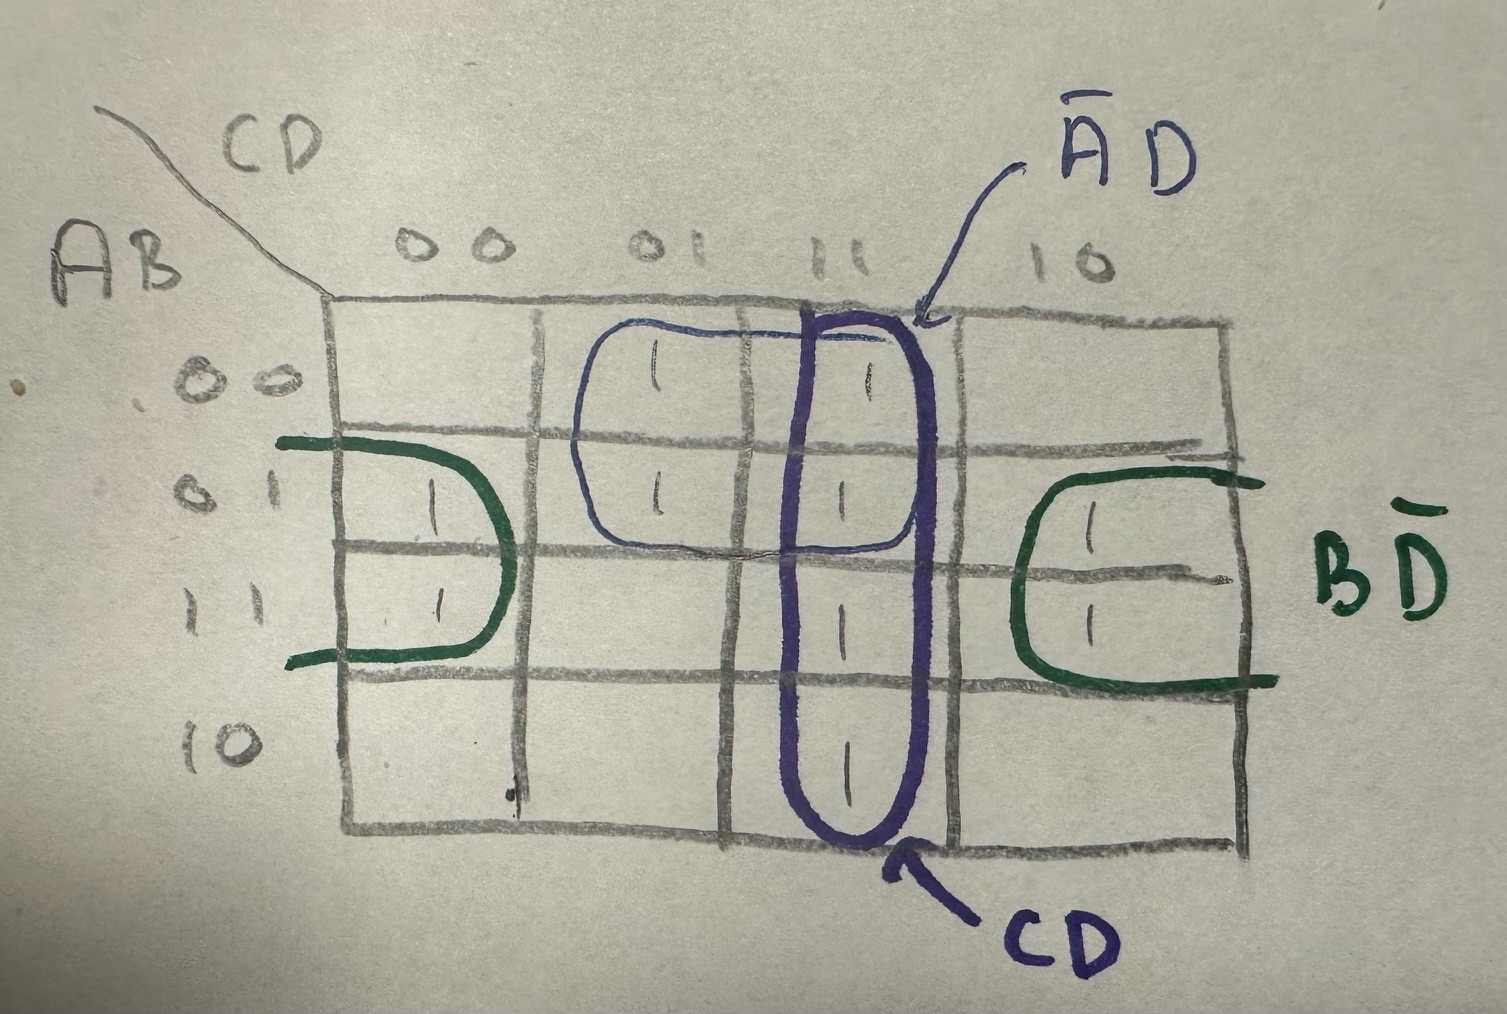 CD
A̅ D
AB
00 01 11 10
00 1 1
01 1 1 1 1
B D̅
11 1 1 1
10 1
CD